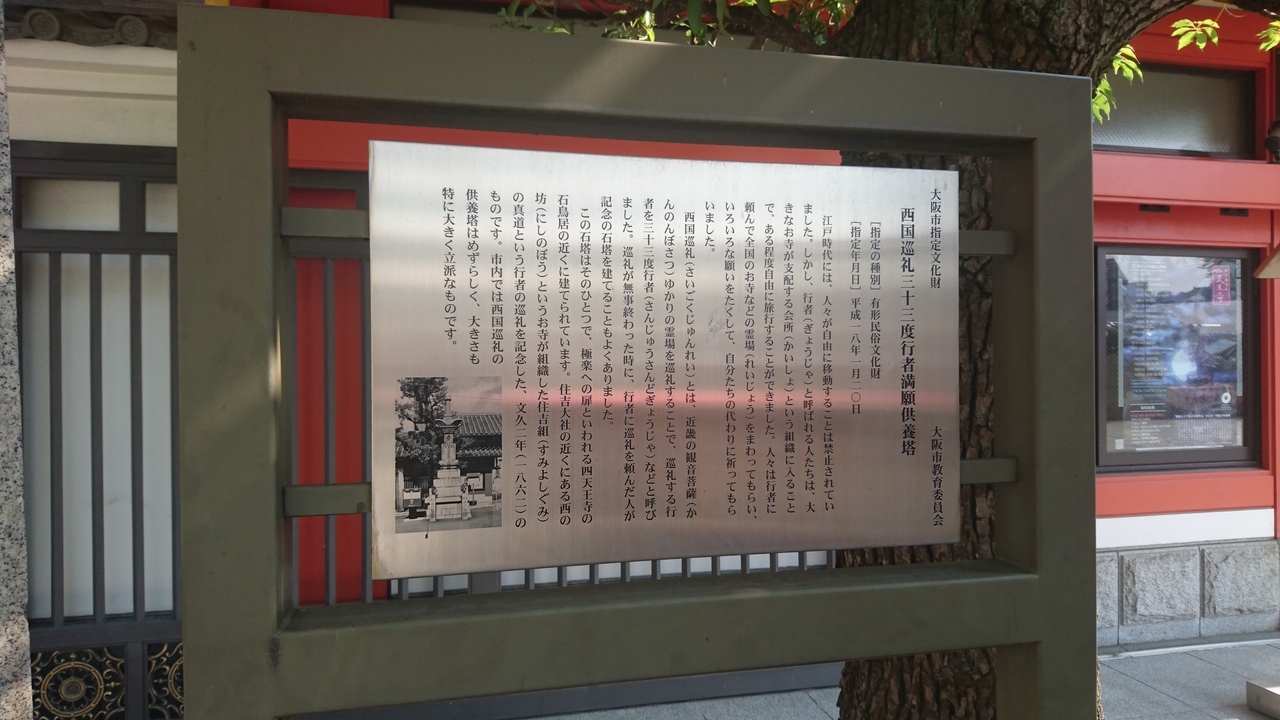 大阪市指定文化財　大阪市教育委員会
西国巡礼三十三度行者満願供養塔
［指定の種別］有形民俗文化財
［指定年月日］平成一八年一月二〇日
江戸時代には、人々が自由に移動することは禁止されてい
ました。しかし、行者（ぎょうじゃ）と呼ばれる人たちは、大
きなお寺が支配する会所（かいしょ）という組織に入ること
で、ある程度自由に旅行することができました。人々は行者に
頼んで全国のお寺などの霊場（れいじょう）をまわってもらい、
いろいろな願いをたくして、自分たちの代わりに祈ってもら
いました。
西国巡礼（さいごくじゅんれい）とは、近畿の観音菩薩（か
んのんぼさつ）ゆかりの霊場を巡礼することで、巡礼する行
者を三十三度行者（さんじゅうさんどぎょうじゃ）などと呼び
ました。巡礼が無事終わった時に、行者に巡礼を頼んだ人が
記念の石塔を建てることもよくありました。
この石塔はそのひとつで、極楽への扉といわれる四天王寺の
石鳥居の近くに建てられています。住吉大社の近くにある西の
坊（にしのぼう）というお寺が組織した住吉組（すみよしぐみ）
の真道という行者の巡礼を記念した、文久二年（一八六二）の
ものです。市内では西国巡礼の
供養塔はめずらしく、大きさも
特に大きく立派なものです。